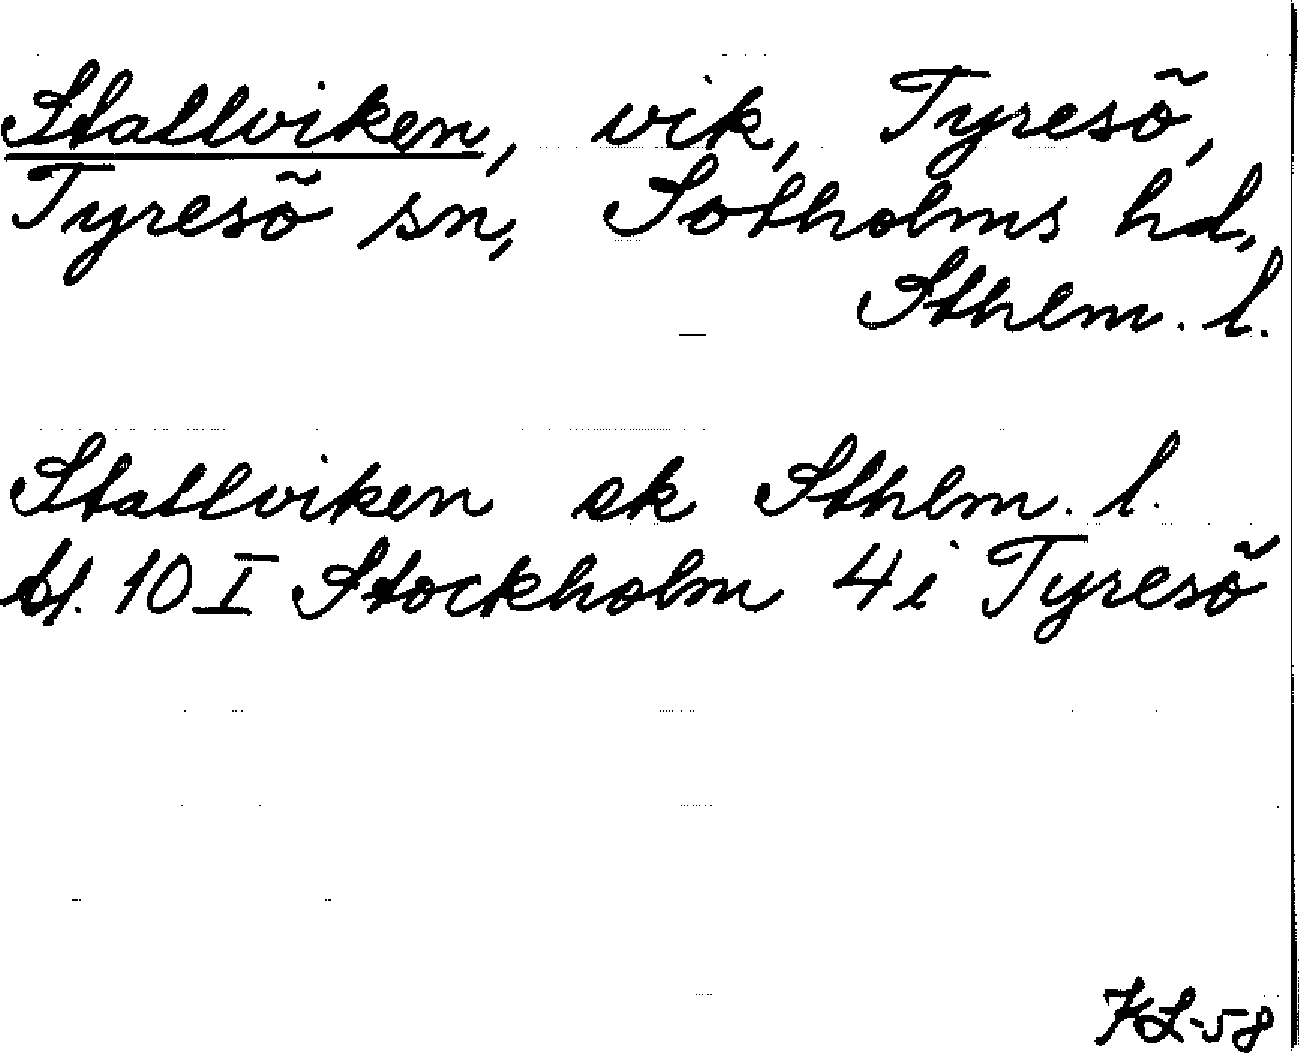 Stallviken, vik, Tyresö,
Tyresö sn, Sotholms hd,
Sthlm. l.
Stallviken ek Sthlm. l.
bl. 10 I Stockholm 4i Tyresö
KL-58